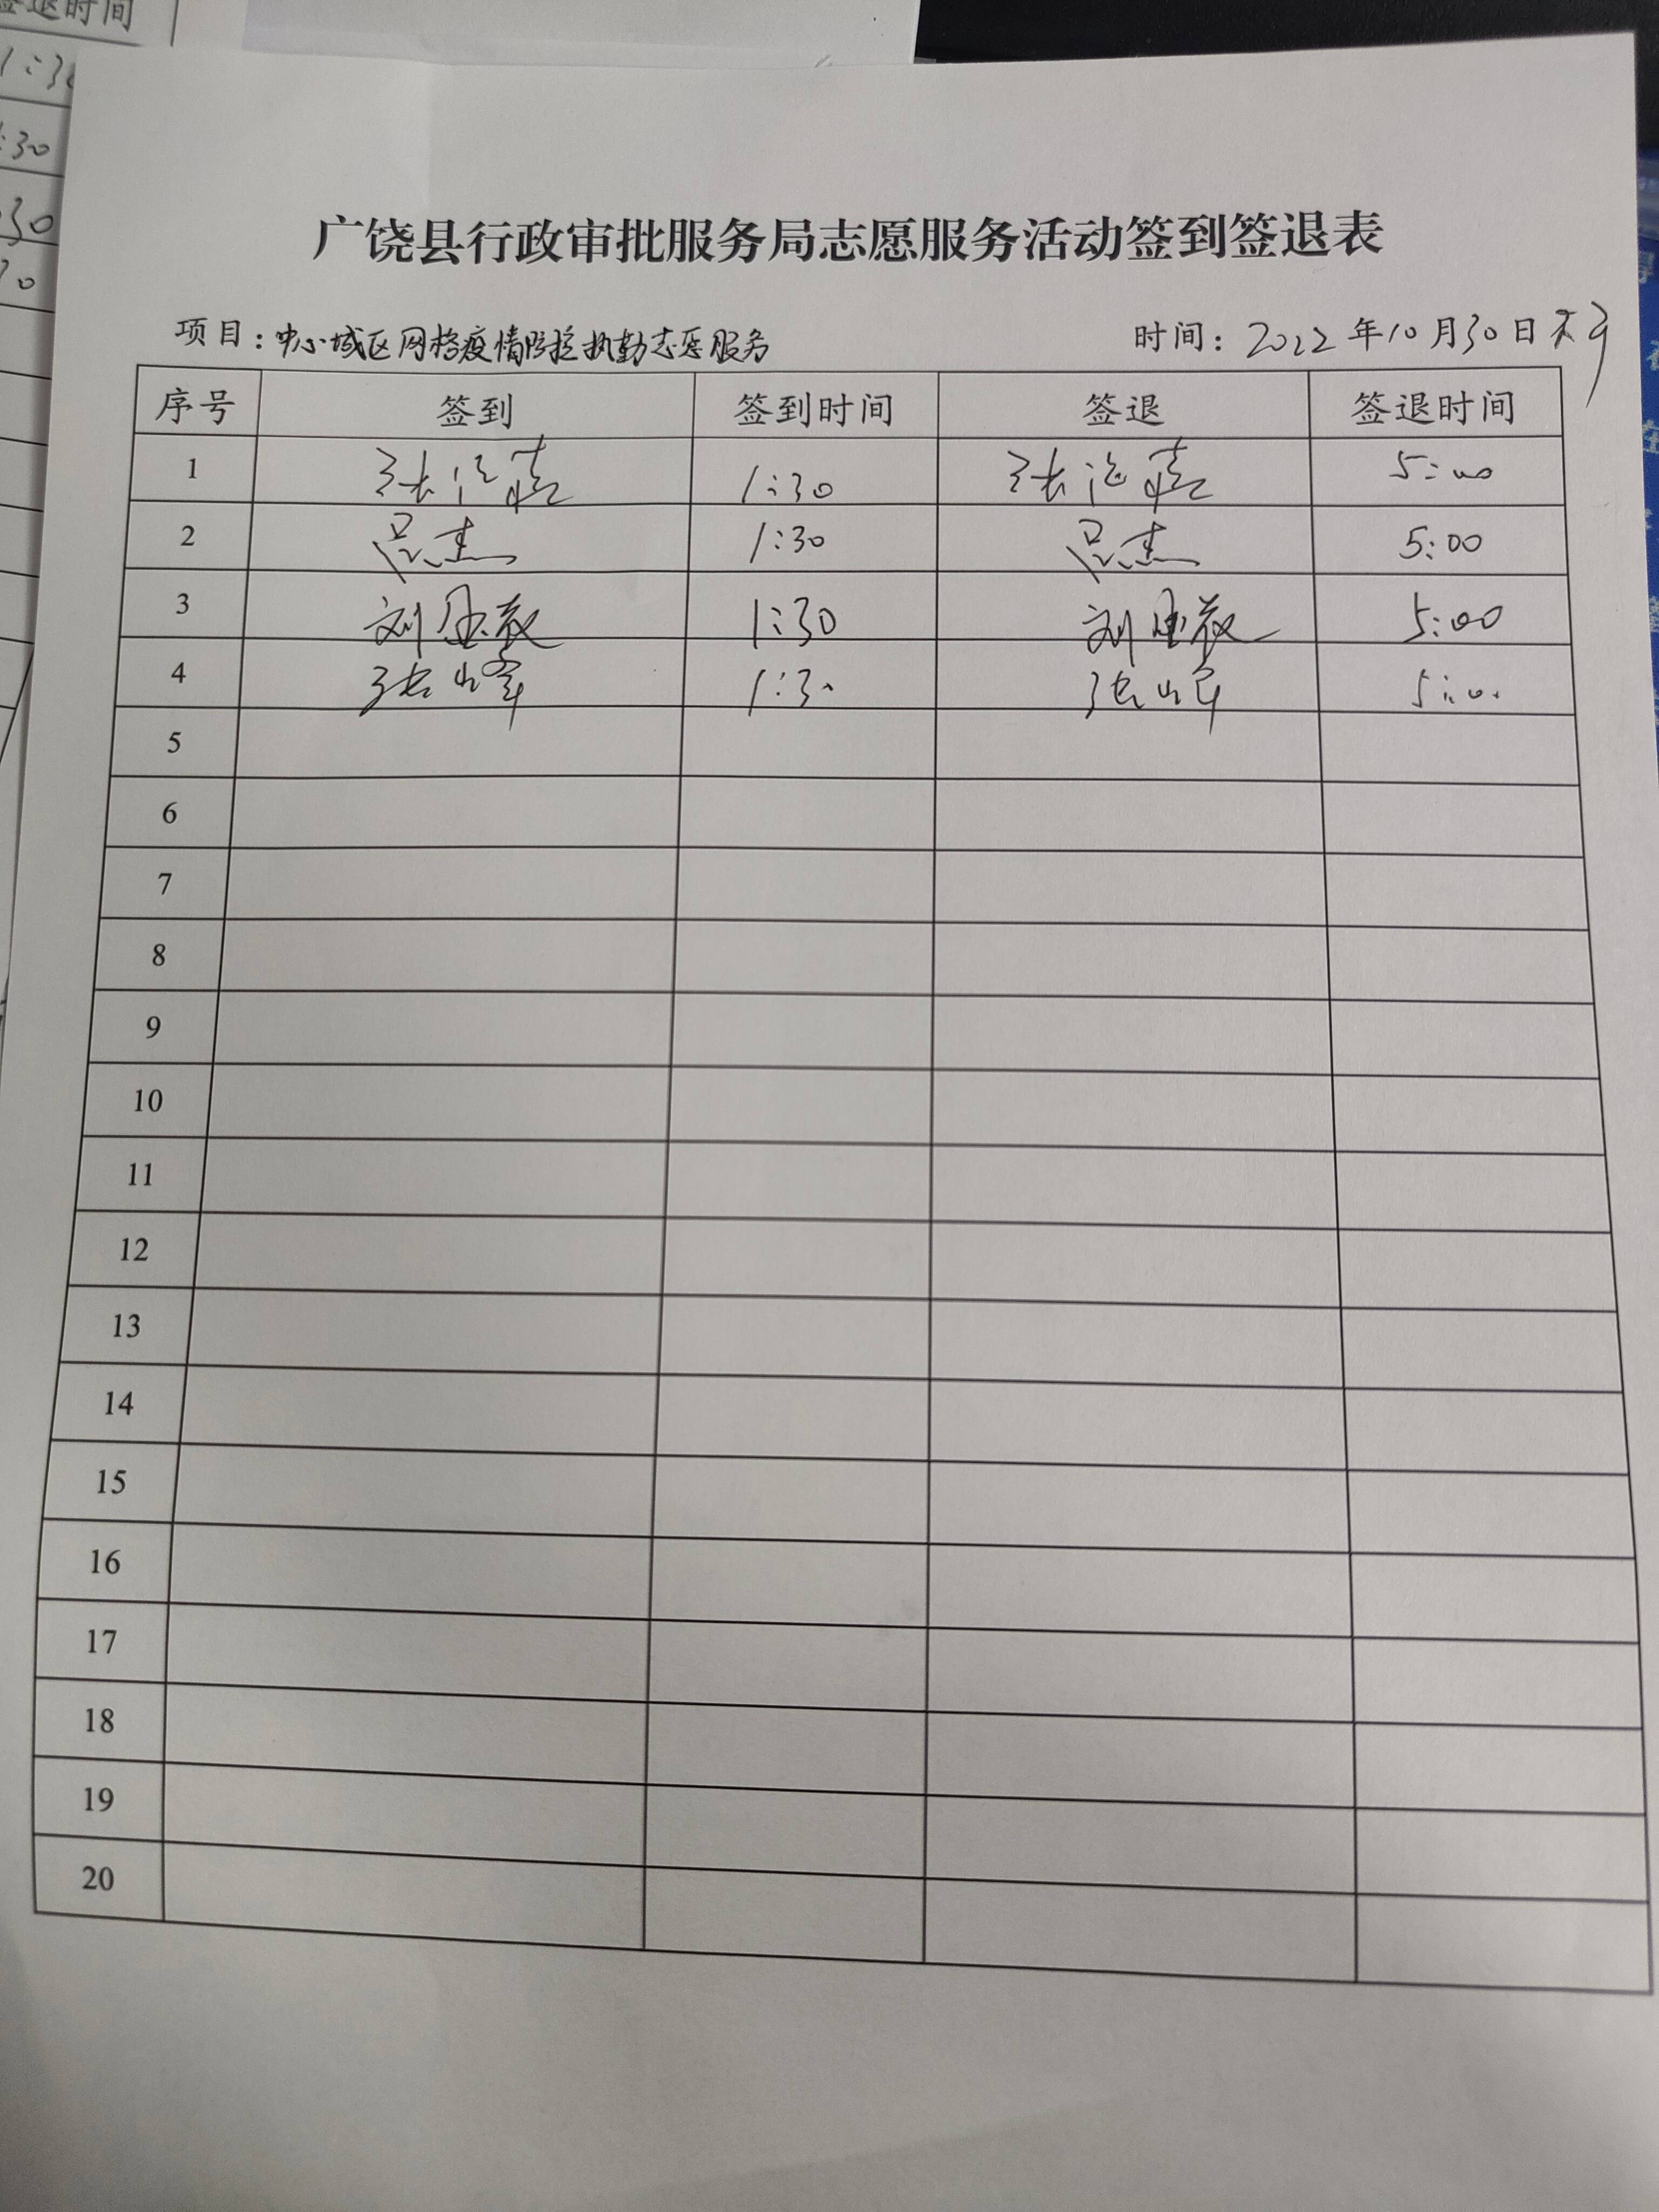 签退时间
1:30
:30
30
广饶县行政审批服务局志愿服务活动签到签退表
项目：中心城区网格疫情防控执勤志愿服务 时间：2022年10月30日下午
序号 签到 签到时间 签退 签退时间
1 张 1:30 张 5:00
2 吕杰 1:30 吕杰 5:00
3 刘 1:30 刘 5:00
4 张峰 1:30 张峰 5:00
5
6
7
8
9
10
11
12
13
14
15
16
17
18
19
20